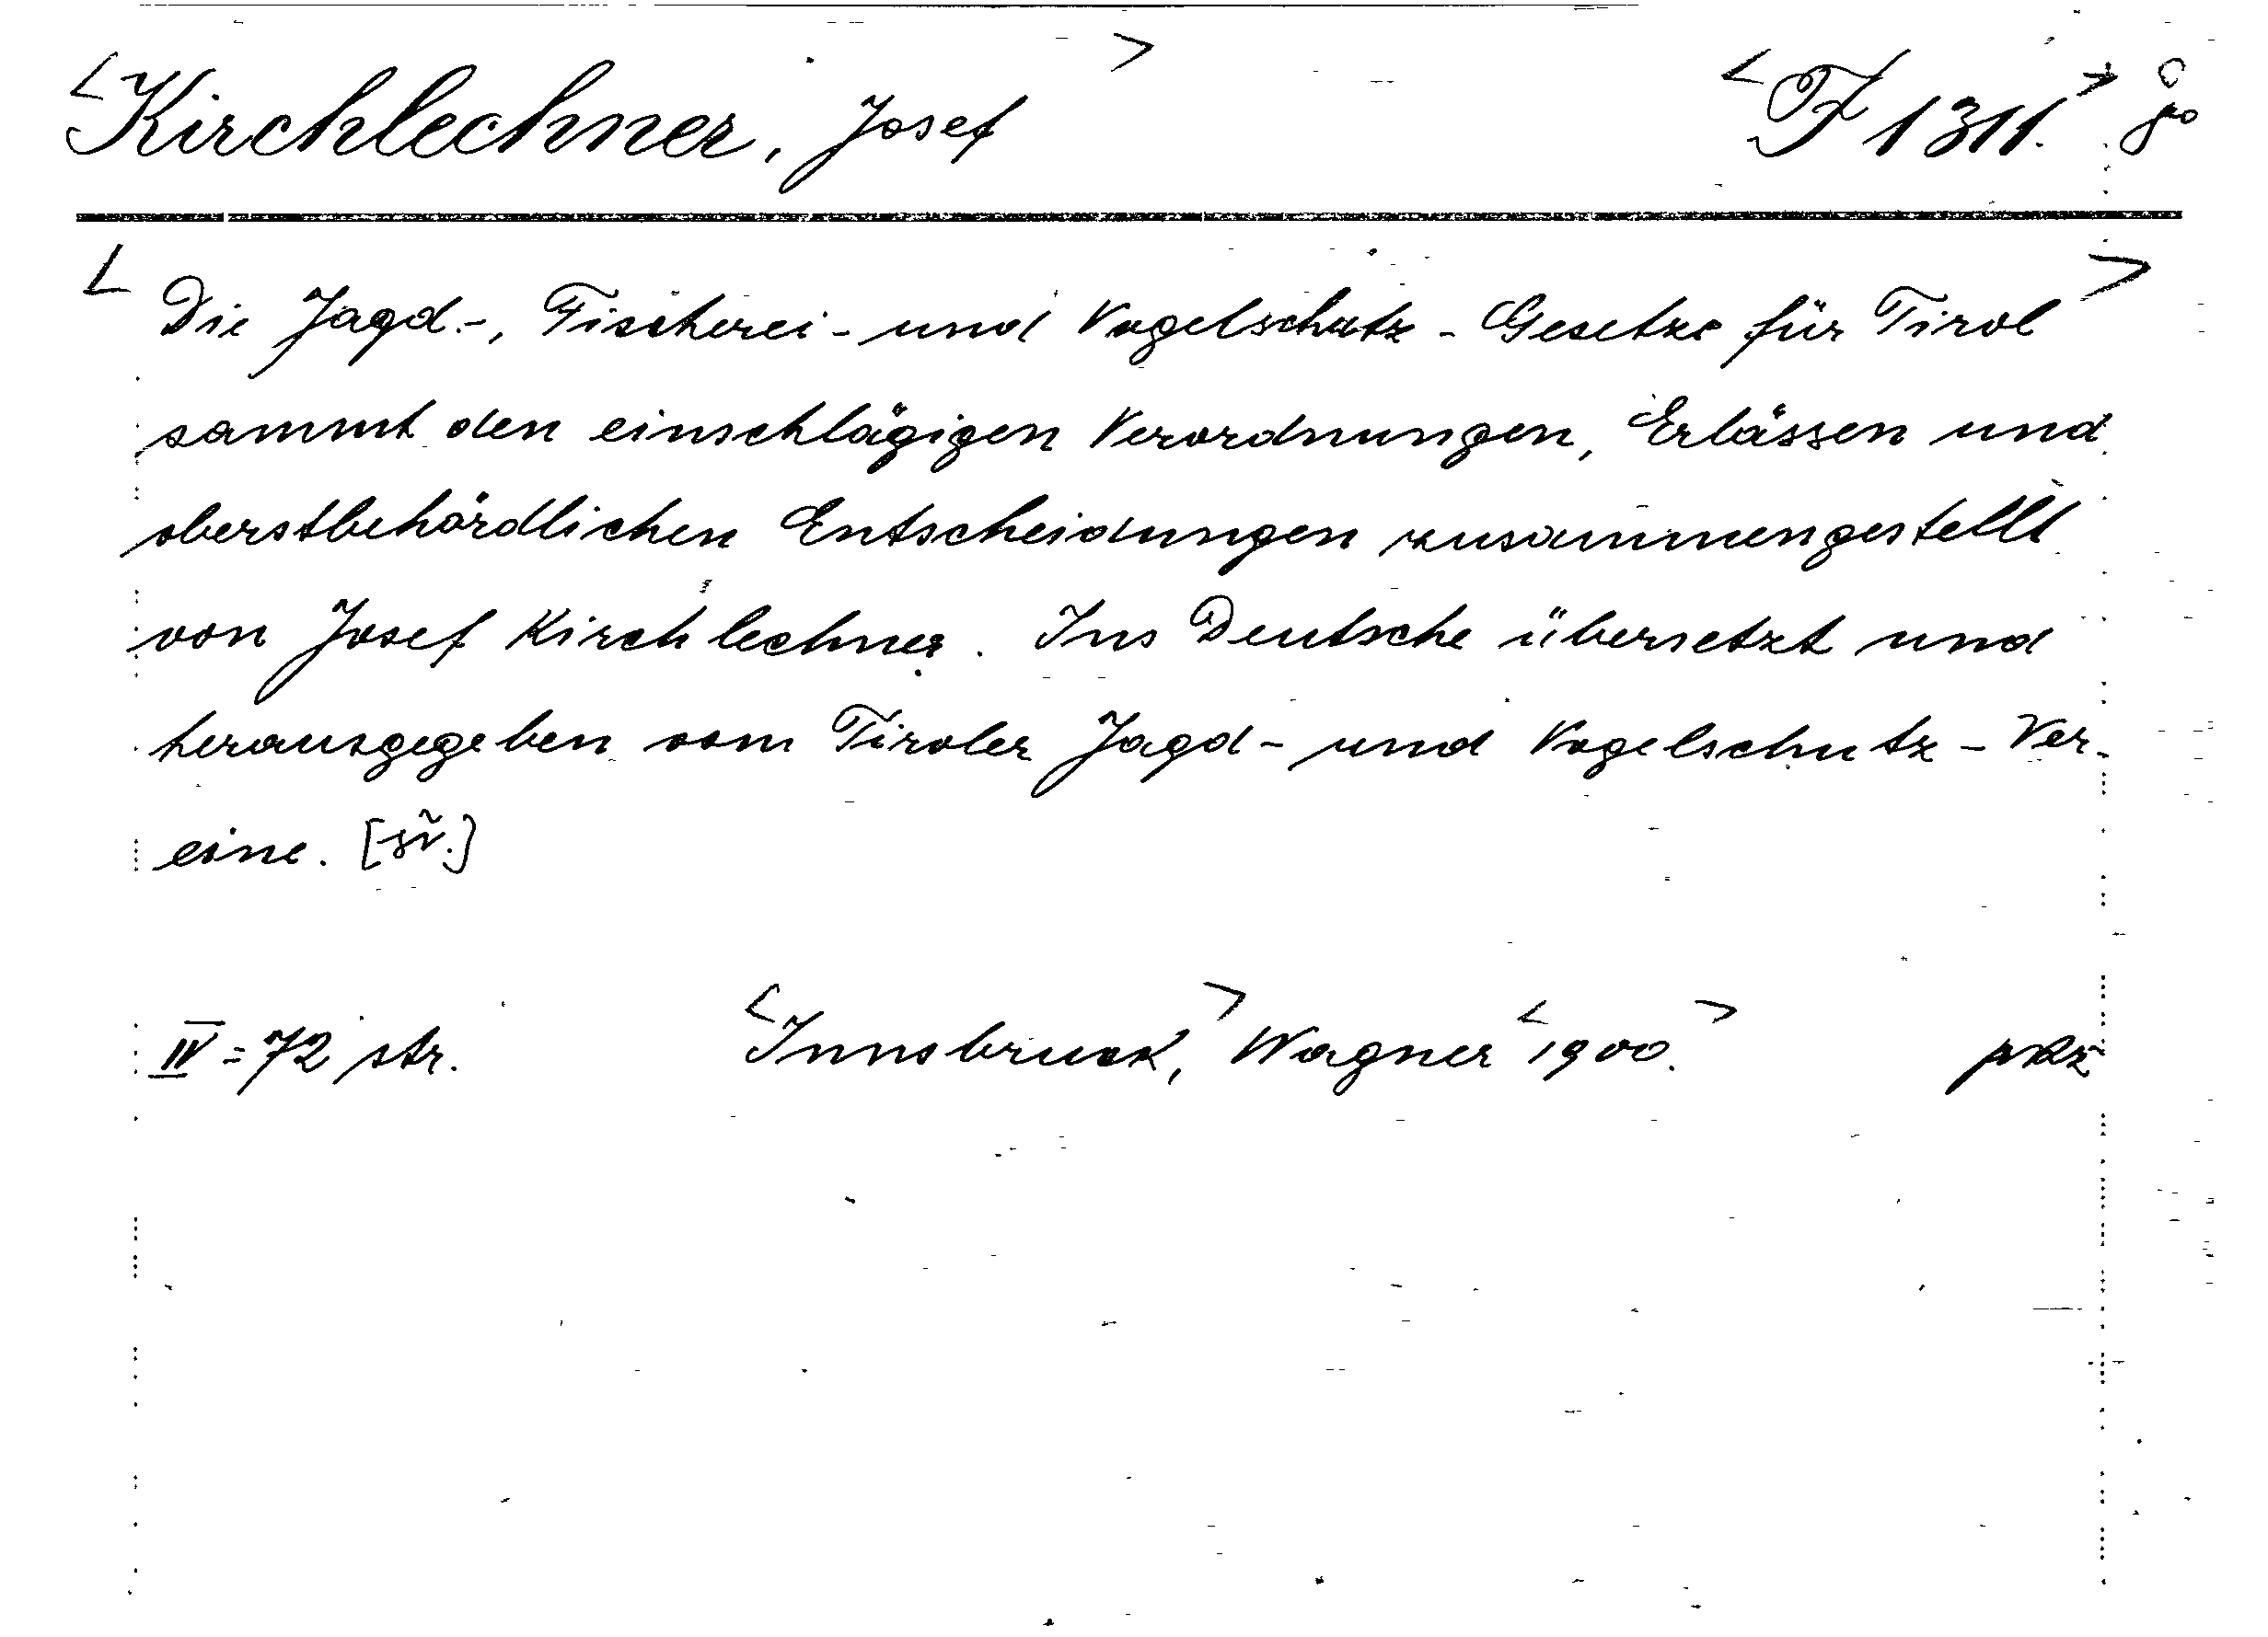 <Kirchlechner, Josef> <F 1311.>
<Die Jagd.-, Fischerei- und Vogelschutz-Gesetze für Tirol>
sammt den einschlägigen Verordnungen, Erlässen und
oberstbehördlichen Entscheidungen zusammengestellt
von Josef Kirchlechner. Ins Deutsche übersetzt und
herausgegeben vom Tiroler Jagd- und Vogelschutz-Ver-
eine.
IV=72 str. <Innsbruck,> Wagner <1900.>